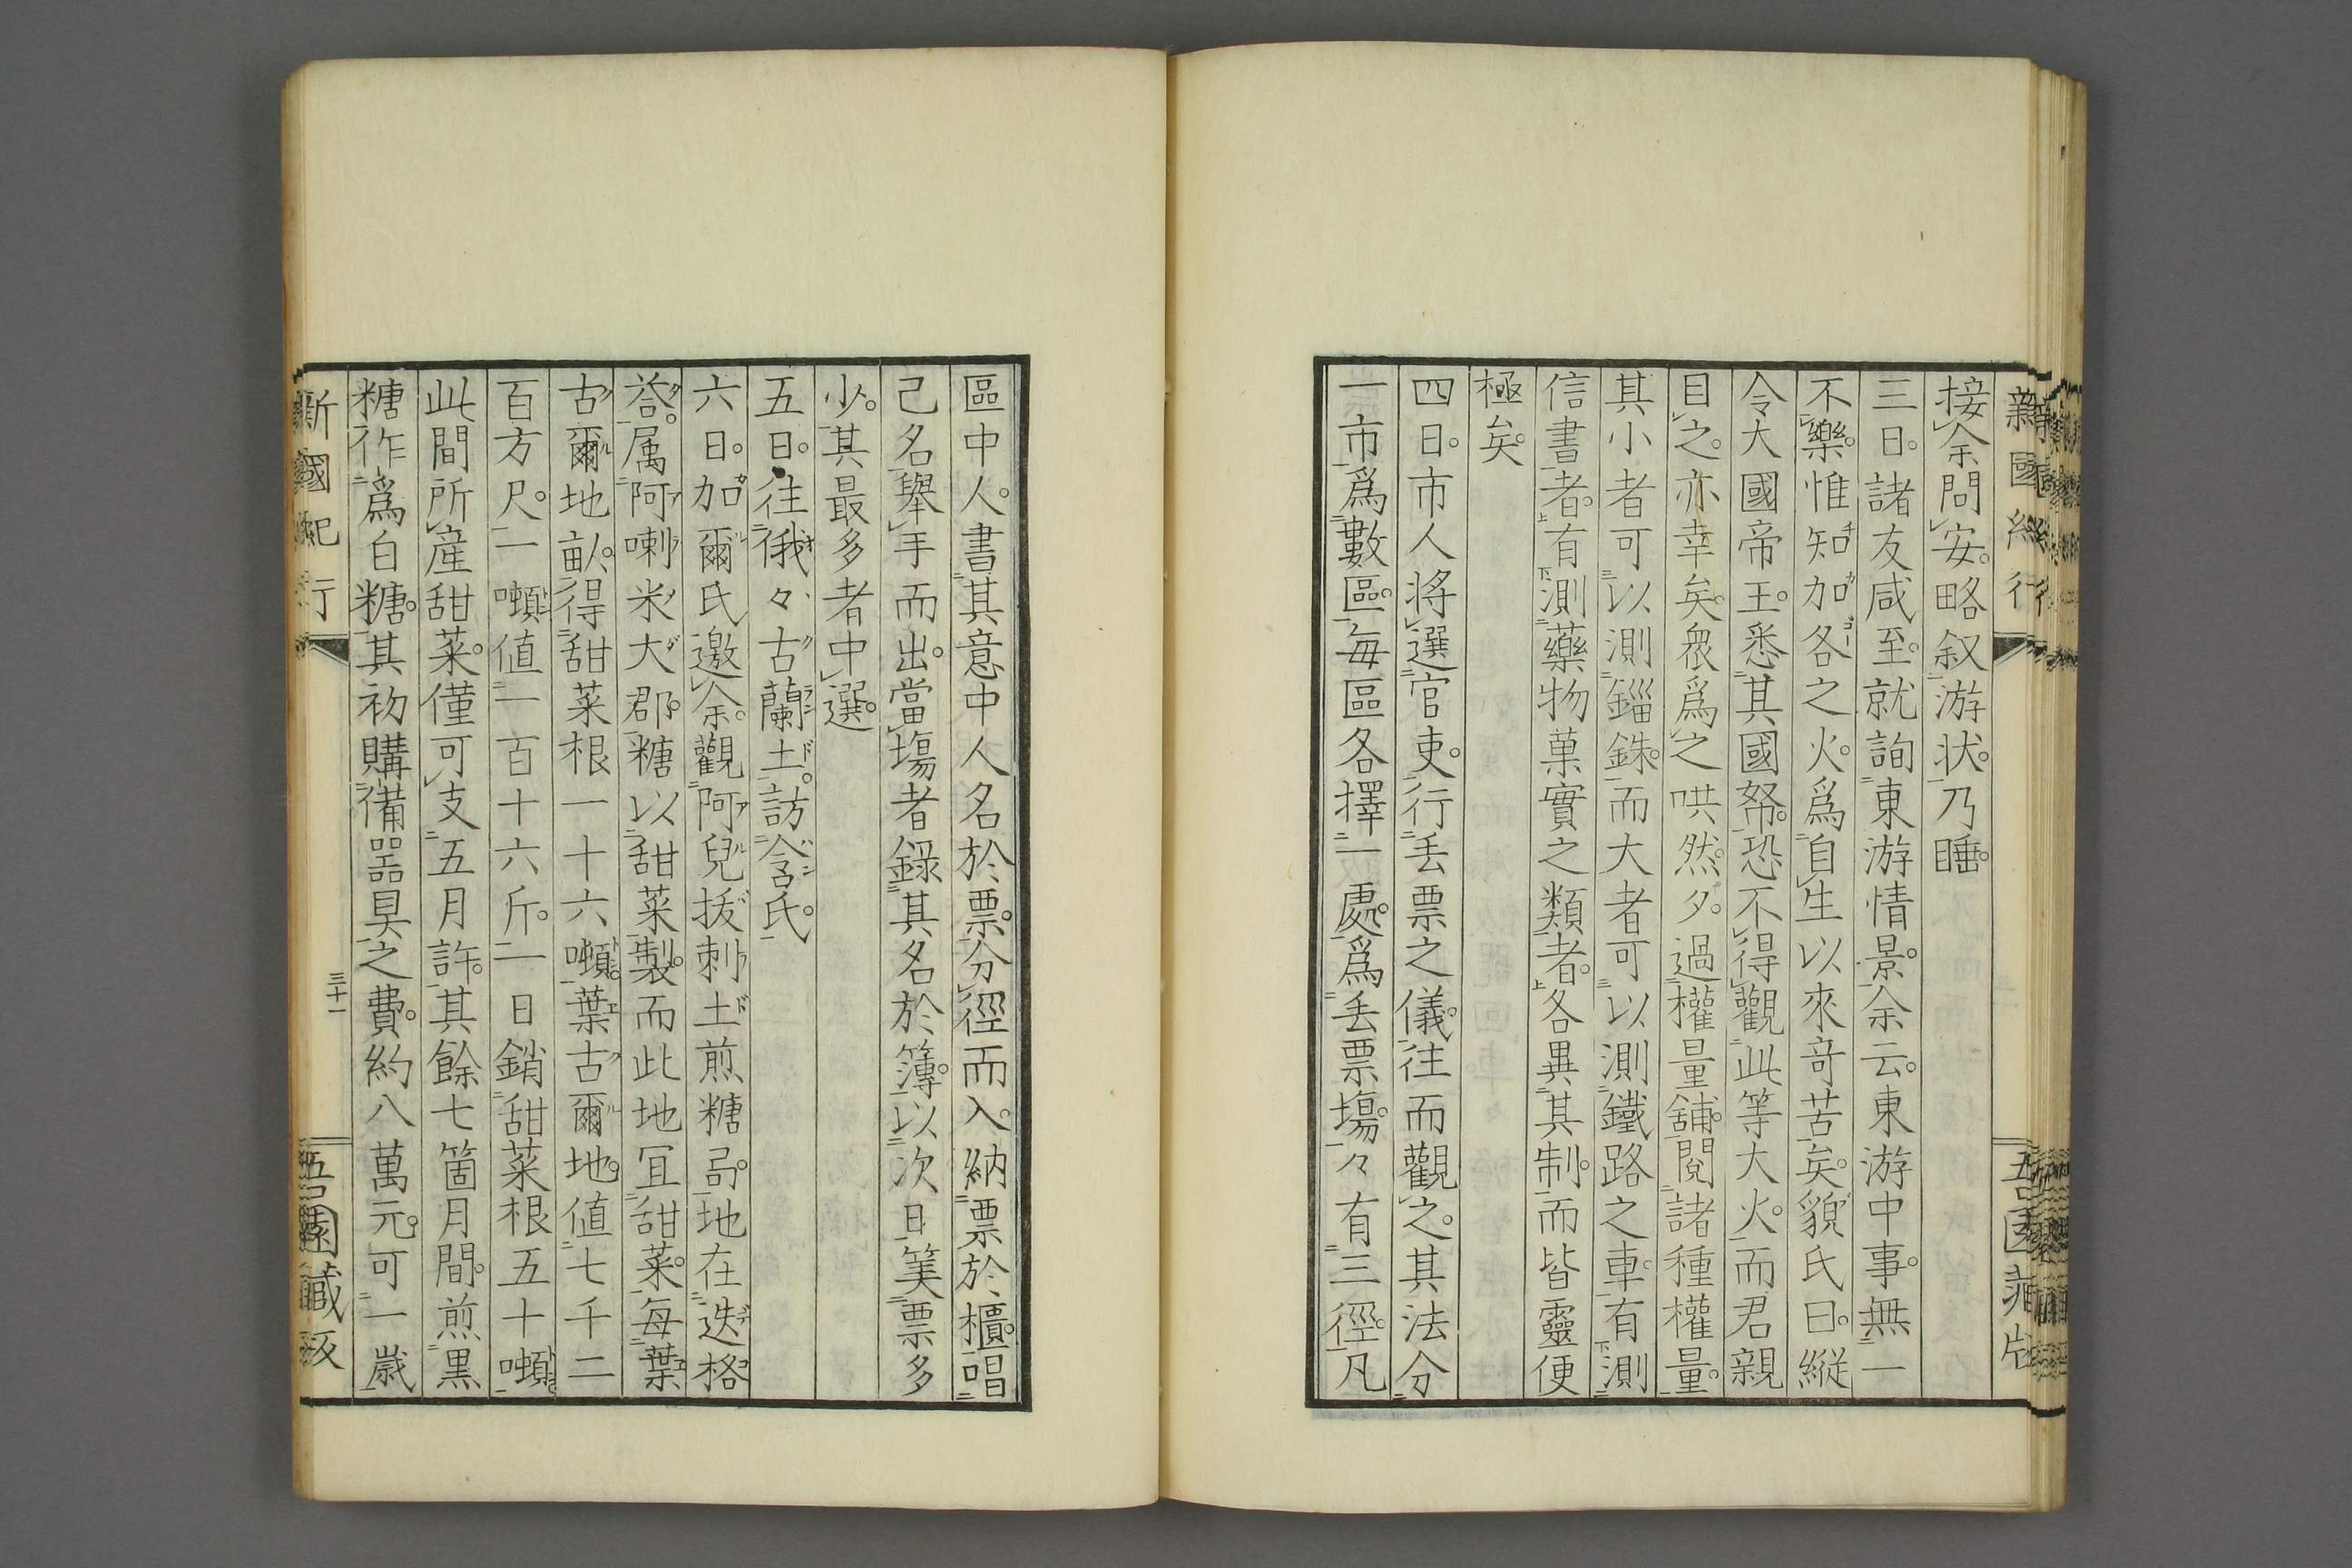 新國紀行
接余問安。略叙游状。乃睡。
三日。諸友咸至。就詢東游情景。余云。東游中事。無一
不樂。惟知加各之火。爲自生以來竒苦矣。貌氏曰。縦
令大國帝王。悉其國帑。恐不得觀此等大火。而君親
目之。亦幸矣。衆爲之哄然。夕。過權量舖。閲諸種權量。
其小者可以測錙銖。而大者可以測鐵路之車。有測
信書者。有測藥物菓實之類者。各異其制。而皆靈便
極矣。
四日。市人將選官吏。行丢票之儀。往而觀之。其法分
一市爲數區。毎區各擇一處。爲丢票塲。々有三徑。凡
區中人。書其意中人名於票。分徑而入。納票於櫃。唱
己名舉手而出。當塲者録其名於簿。以次日筭票多
少。其最多者中選。
五日。往俄々古蘭土。訪含氏。
六日。加爾氏邀余。觀阿兒抜刺土煎糖局。地在迭格
荅。属阿喇米大郡。糖以甜菜製。而此地冝甜菜。毎葉
古爾地畝。得甜菜根一十六噸。葉古爾地。値七千二
百方尺。一噸値一百十六斤。一日銷甜菜根五十噸。
此間所産甜菜。僅可支五月許。其餘七箇月間。煎黒
糖作爲白糖。其初購備器具之費。約八萬元。可一嵗
新國紀行
三十一
吾園藏板